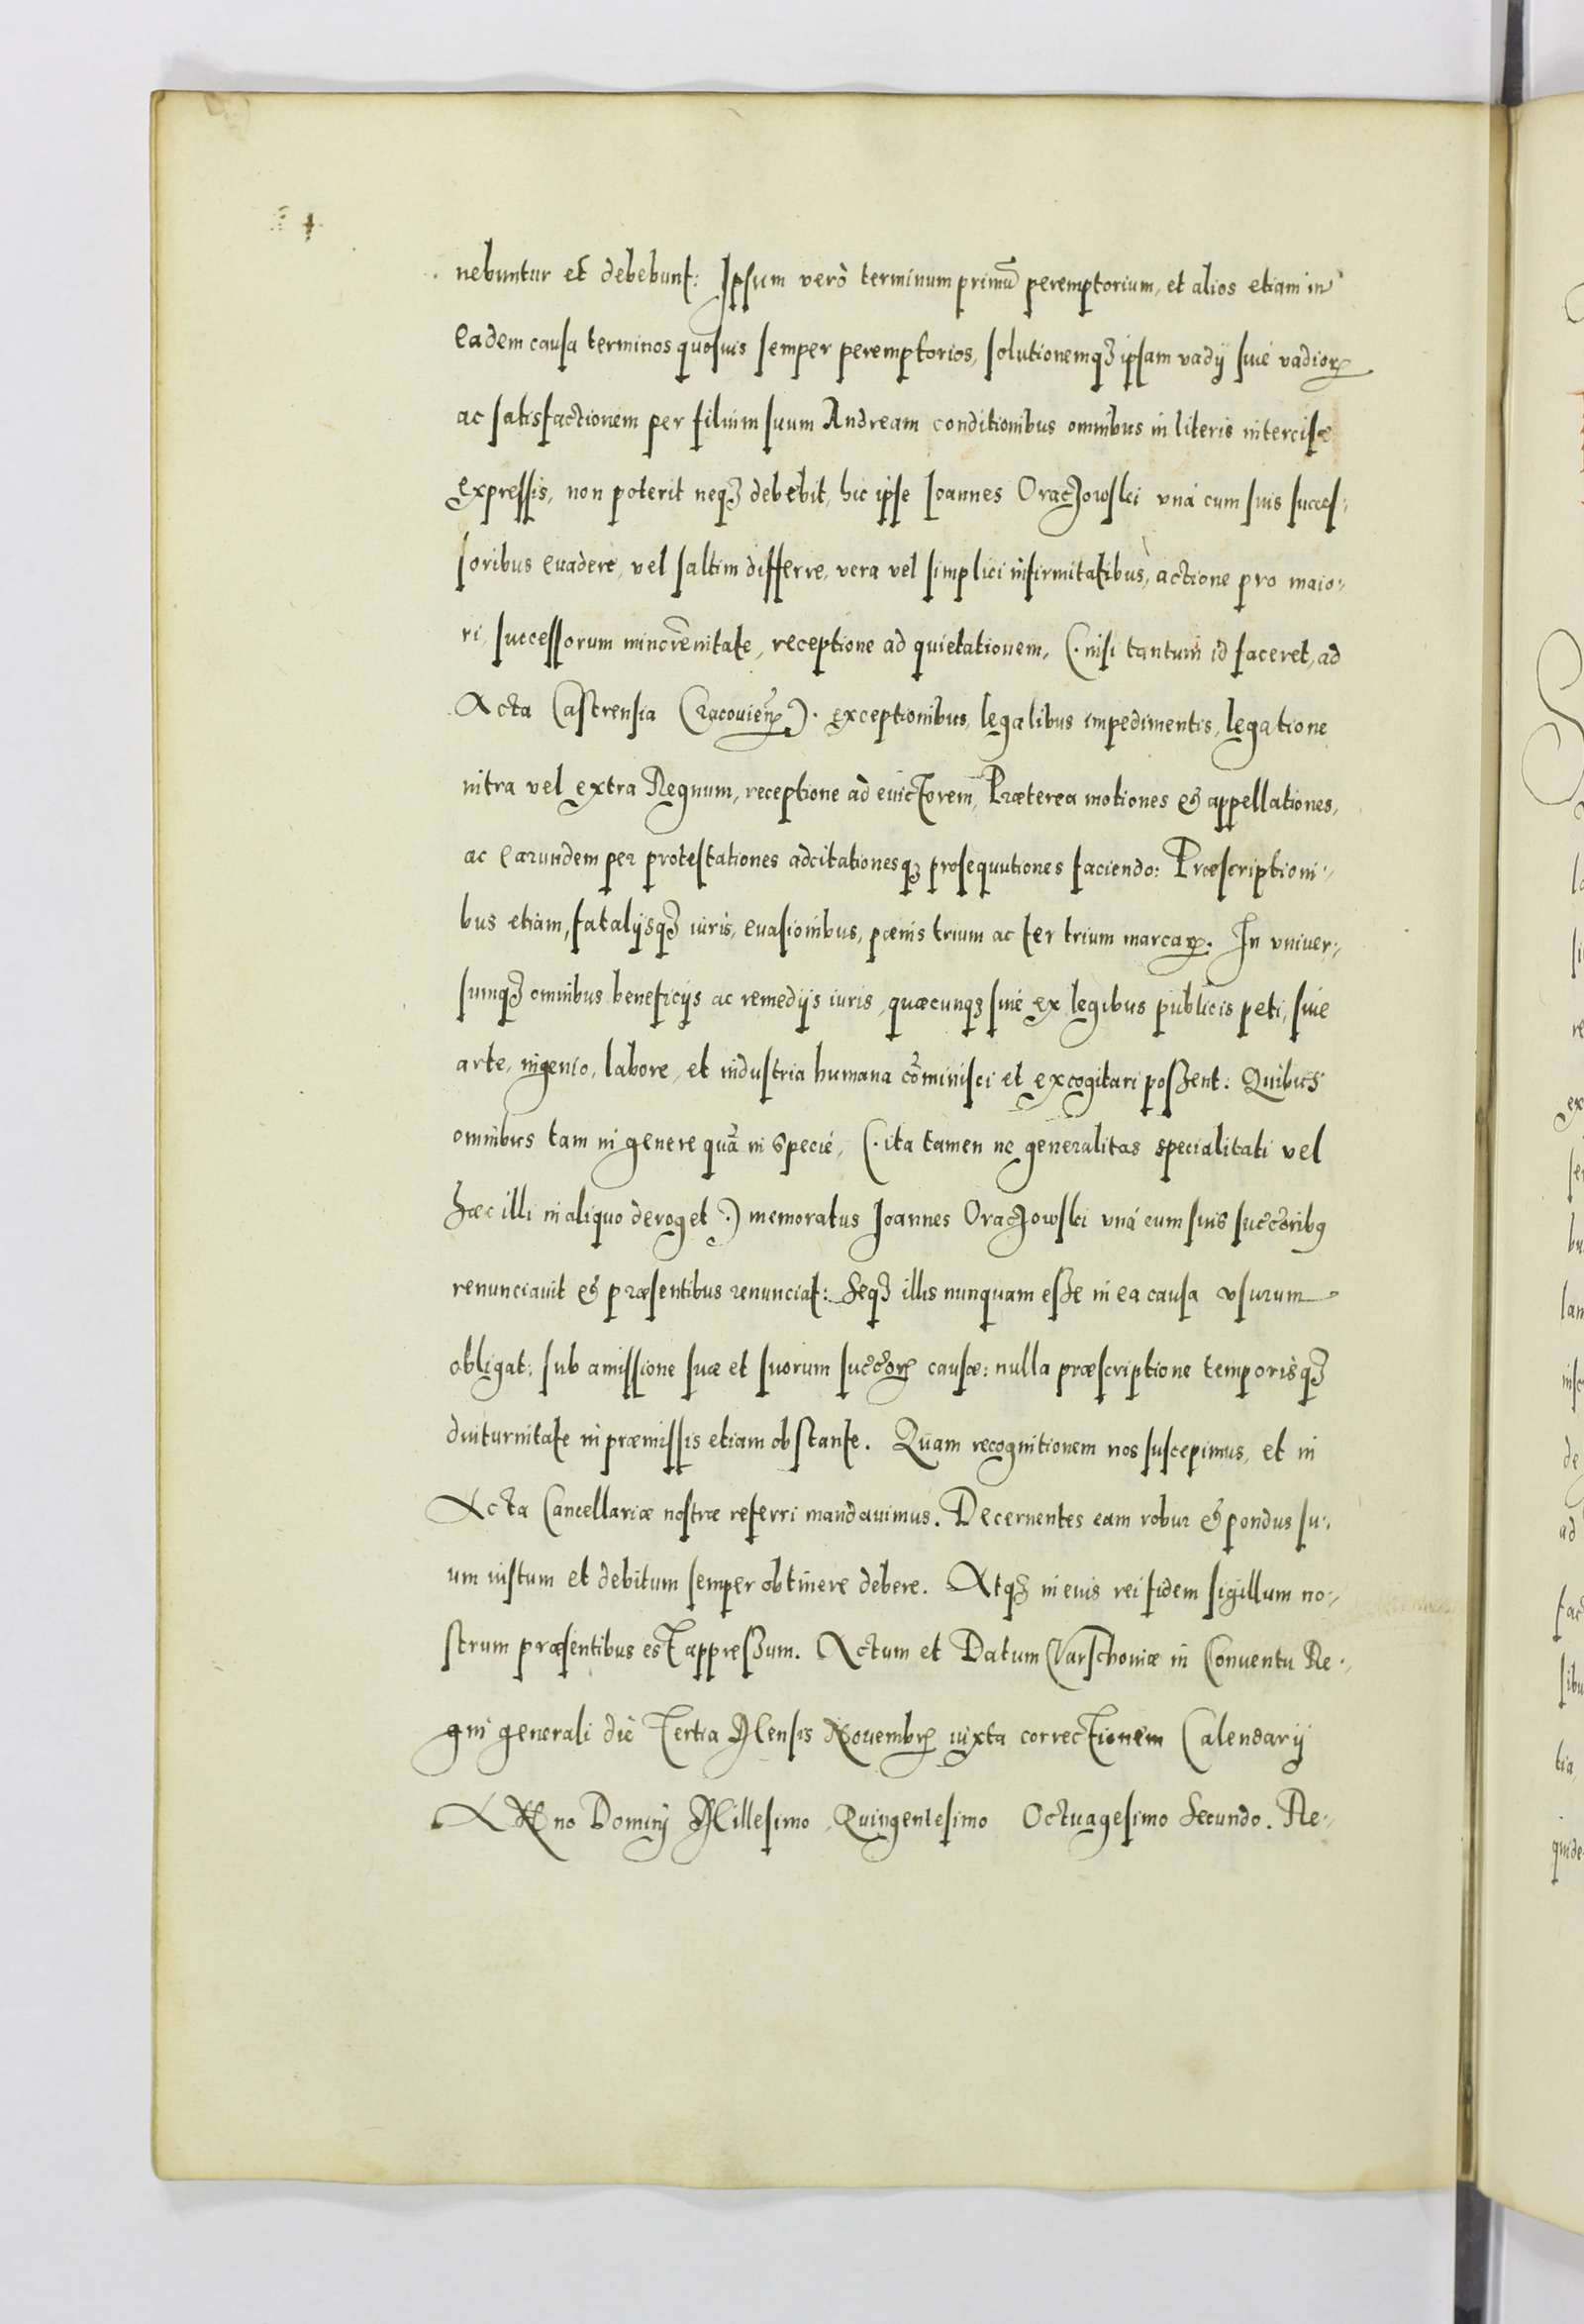 nebuntur et debebunt: Ipsum verò terminum primũ peremptorium, et alios etiam in
eadem causa terminos quosuis semper peremptorios, solutionemqꝫ ipsam vadij siué vadioꝝ
ac satisfactionem per filium suum Andream conditionibus omnibus in literis intercisæ
expressis, non poterit neqꝫ debebit, hic ipse Ioannes Oraczowski vná cum suis succes:
soribus euadere, vel saltim differre, vera vel simplici infirmitatibus, actione pro maio:
ri, successorum minorẽnitate, receptione ad quietationem, (. nisi tantum id faceret, ad
Acta Castrensia Cracouieñ) . exceptionibus, legalibus impedimentis, legatione
intra vel extra Regnum, receptione ad euictorem, Præterea motiones & appellationes,
ac earundem per protestationes adcitationesqꝫ prosequutiones faciendo: Præscriptioni:
bus etiam, fatalijsqꝫ iuris, euasionibus, pœnis trium ac ter trium marcaꝝ. In vniuer:
sumqꝫ omnibus beneficijs ac remedijs iuris, quæcunqꝫ siué ex legibus publicis peti, siue
arte, ingenio, labore, et industria humana cõminisci et excogitari possent: Quibus
omnibus tam in genere quã in specié, (. ita tamen ne generalitas specialitati vel
hæc illi in aliquo deroget .) memoratus Joannes Oraczowski vná cum suis succ̃oribꝰ
renunciauit & præsentibus renunciat: Seqꝫ illis nunquam esse in ea causa vsurum
obligat: sub amissione suæ et suorum succ̃oꝝ causæ: nulla præscriptione temporisqꝫ
diuturnitate in præmissis etiam obstante. Quam recognitionem nos suscepimus, et in
Acta Cancellariæ nostræ referri mandauimus. Decernentes eam robur & pondus su:
um iustum et debitum semper obtinere debere. Atqꝫ in euis rei fidem sigillum no:
strum præsentibus est appressum. Actum et Datum Varschouiæ in Conuentu Re:
gni generali die Tertia Mensis Nouembrꝭ iuxta correctionem Calendarij
Anno Dominj Millesimo Quingentesimo Octuagesimo Secundo. Re: